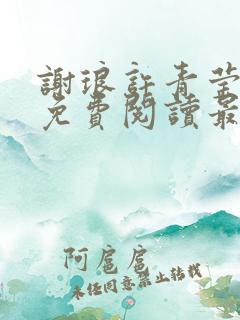 謝琅許青莹
免費閱讀最
阿扈扈
未经同意禁止转载